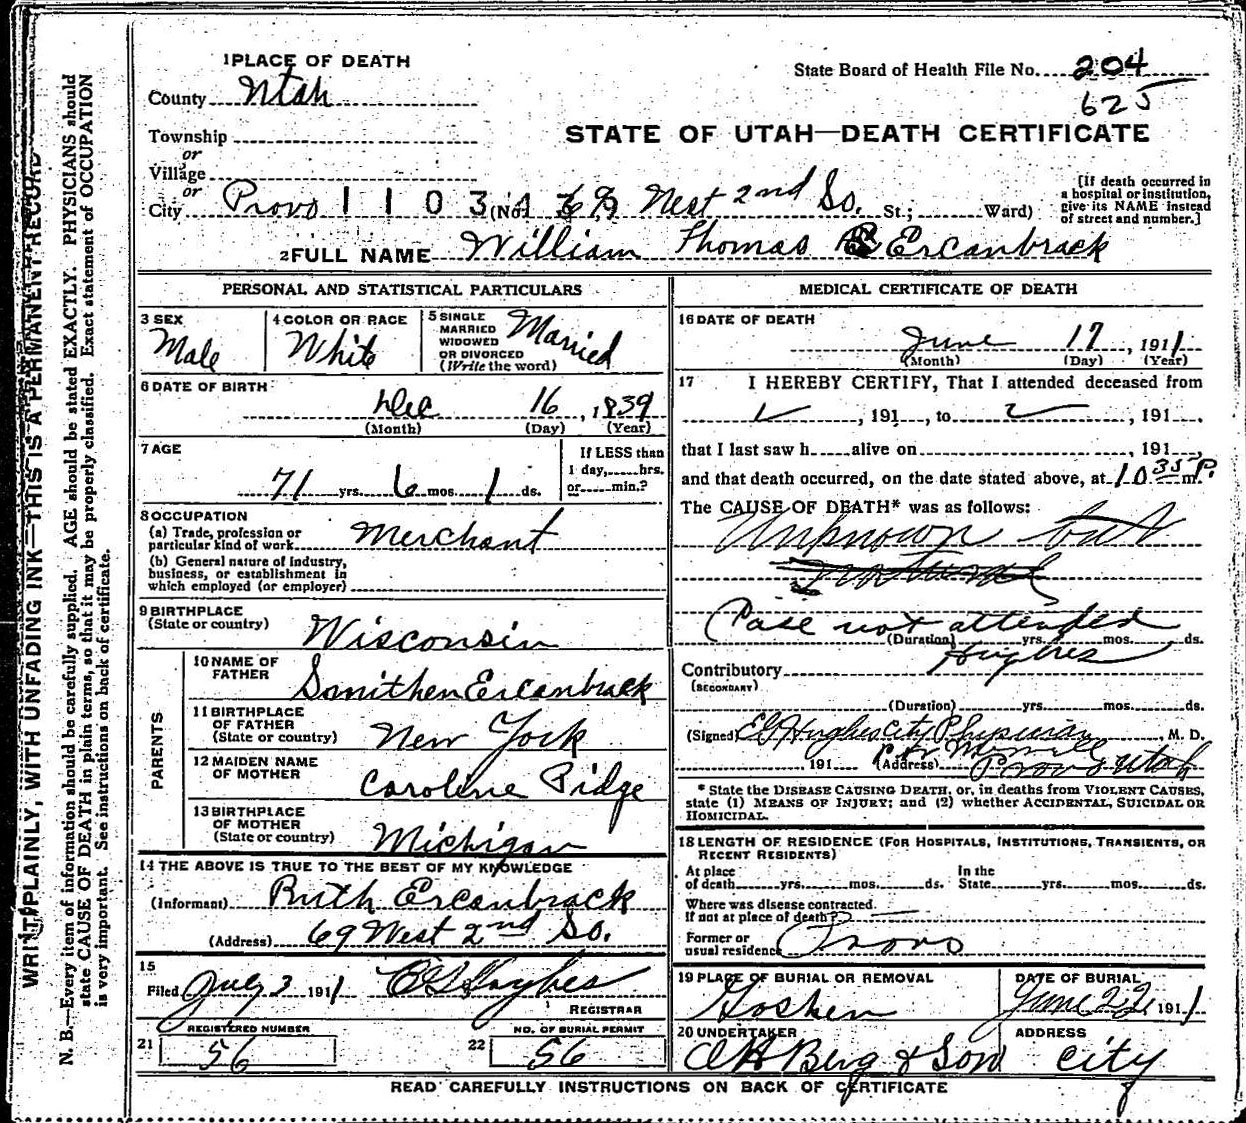 WRITE PLAINLY, WITH UNFADING INK—THIS IS A PERMANENT RECORD
N. B.—Every item of information should be carefully supplied. AGE should be stated EXACTLY. PHYSICIANS should
state CAUSE OF DEATH in plain terms, so that it may be properly classified. Exact statement of OCCUPATION
is very important. See instructions on back of certificate.
1 PLACE OF DEATH
State Board of Health File No. 204
County Utah
625
Township
STATE OF UTAH—DEATH CERTIFICATE
or
Village
or
City Provo 1 1 0 3 (No. 69 West 2nd So. St.; Ward)
[If death occurred in
a hospital or institution,
give its NAME instead
of street and number.]
2 FULL NAME William Thomas Ercanbrack
PERSONAL AND STATISTICAL PARTICULARS
3 SEX
Male
4 COLOR OR RACE
White
5 SINGLE
MARRIED
WIDOWED
OR DIVORCED
(Write the word)
Married
6 DATE OF BIRTH
Dec 16, 1839
(Month) (Day) (Year)
7 AGE
71 yrs. 6 mos. 1 ds.
If LESS than
1 day, hrs.
or min.?
8 OCCUPATION
(a) Trade, profession or
particular kind of work Merchant
(b) General nature of industry,
business, or establishment in
which employed (or employer)
9 BIRTHPLACE
(State or country) Wisconsin
PARENTS
10 NAME OF
FATHER Smithen Ercanbrack
11 BIRTHPLACE
OF FATHER
(State or country) New York
12 MAIDEN NAME
OF MOTHER Caroline Pidge
13 BIRTHPLACE
OF MOTHER
(State or country) Michigan
14 THE ABOVE IS TRUE TO THE BEST OF MY KNOWLEDGE
(Informant) Ruth Ercanbrack
(Address) 69 West 2nd So.
15
Filed July 3 1911 E G Hughes
REGISTRAR
REGISTERED NUMBER
21 56
NO. OF BURIAL PERMIT
22 56
MEDICAL CERTIFICATE OF DEATH
16 DATE OF DEATH
June 17, 1911
(Month) (Day) (Year)
17 I HEREBY CERTIFY, That I attended deceased from
, 191 , to , 191
that I last saw h alive on , 191
and that death occurred, on the date stated above, at 10 35 P. m.
The CAUSE OF DEATH* was as follows:
Unknown but
Case not attended
(Duration) yrs. mos. ds.
Hughes
Contributory
(SECONDARY)
(Duration) yrs. mos. ds.
(Signed) E G Hughes City Physician, M. D.
191 (Address) Provo Utah
* State the DISEASE CAUSING DEATH, or, in deaths from VIOLENT CAUSES,
state (1) MEANS OF INJURY; and (2) whether ACCIDENTAL, SUICIDAL OR
HOMICIDAL.
18 LENGTH OF RESIDENCE (FOR HOSPITALS, INSTITUTIONS, TRANSIENTS, OR
RECENT RESIDENTS)
At place
of death yrs. mos. ds.
In the
State yrs. mos. ds.
Where was disease contracted,
If not at place of death?
Former or
usual residence Provo
19 PLACE OF BURIAL OR REMOVAL
Goshen
DATE OF BURIAL
June 22, 1911
20 UNDERTAKER
O H Berg & Son
ADDRESS
City
READ CAREFULLY INSTRUCTIONS ON BACK OF CERTIFICATE